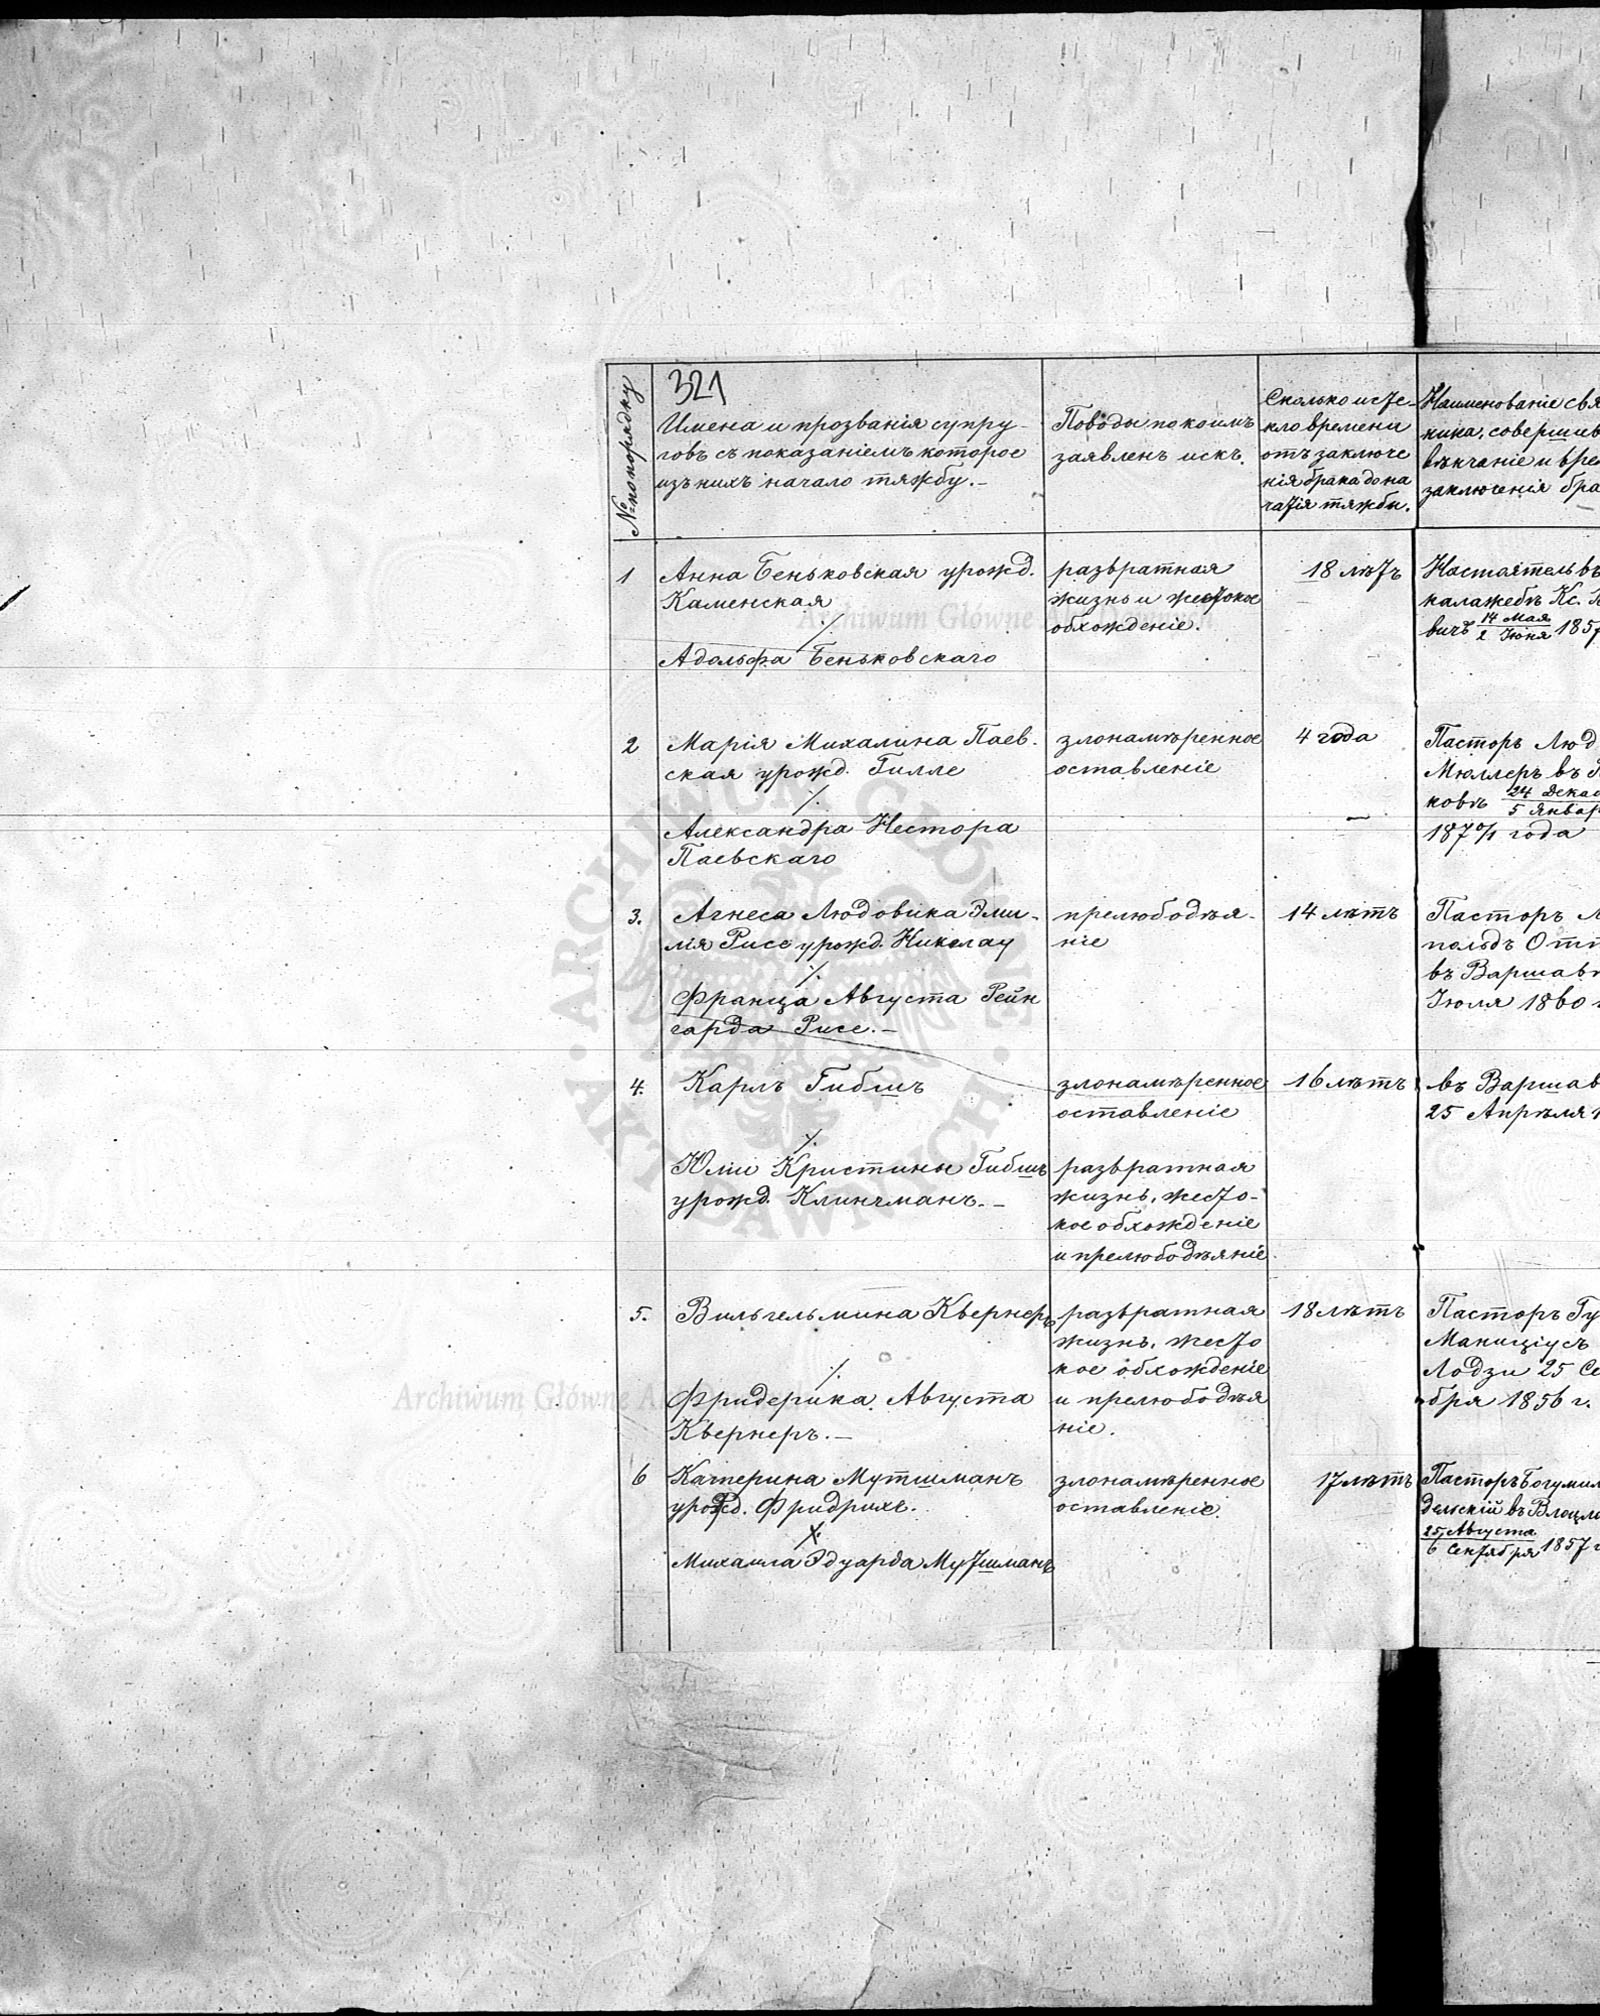 321
№ по порядку
Имена и прозванія супру-
говъ съ показаніемъ которое
изъ нихъ начало тяжбу.-
Поводы по коимъ
заявленъ искъ.
Сколько исте-
кло времени
отъ заключе
нія брака до на
чатія тяжбы.
Наименованіе свя
ника, соверши
вѣнчаніе и вре
заключенія бра
1
Анна Беньковская урожд.
Каменская
·/.
Адольфа Беньковскаго
развратная
жизнь и жестокое
обхожденіе.
18 лѣтъ
Настоятель въ
калажебѣ Кс.
вичъ 14 Мая / 2 Іюня 1857
2
Марія Михалина Паев.
ская урожд. Гилле
·/.
Александра Нестора
Паевскаго
злонамѣренное
оставленіе
4 года
Пасторъ Люд
Мюллеръ въ
ковѣ 24 Декаб / 5 Январ
1870/1 года
3.
Агнеса Людовика Эми-
лія Риссе урожд. Николау
·/.
Франца Августа Рейн
гарда Риссе.-
прелюбодѣя-
ніе
14 лѣтъ
Пасторъ Л
польдъ Отт
въ Варшав
Іюля 1860
4.
Карлъ Гибшъ
·/.
Юліи Кристины Гибшъ
урожд. Клингманъ.-
злонамѣренное
оставленіе
развратная
жизнь, жесто-
кое обхожденіе
и прелюбодѣяніе.
16 лѣтъ
въ Варшав
25 Апрѣля
5.
Вильгельмина Квернеръ
·/.
Фридерика Августа
Квернеръ.-
развратная
жизнь, жесто
кое обхожденіе
и прелюбодѣя
ніе.
18 лѣтъ
Пасторъ Гу
Маниціусъ
Лодзи 25 Се
бря 1856 г.
6
Катерина Мутшманъ
урожд. Фридрихъ.
·/.
Михаила Эдуарда Мутшманъ
злонамѣренное
оставленіе.
17 лѣтъ
Пасторъ Богумил
дельскій въ Влоцл
25 Августа / 6 Сентября 1857 г
Archiwum Główne
Archiwum Główne A
ARCHIWUM GŁÓWNE AKT DAWNYCH